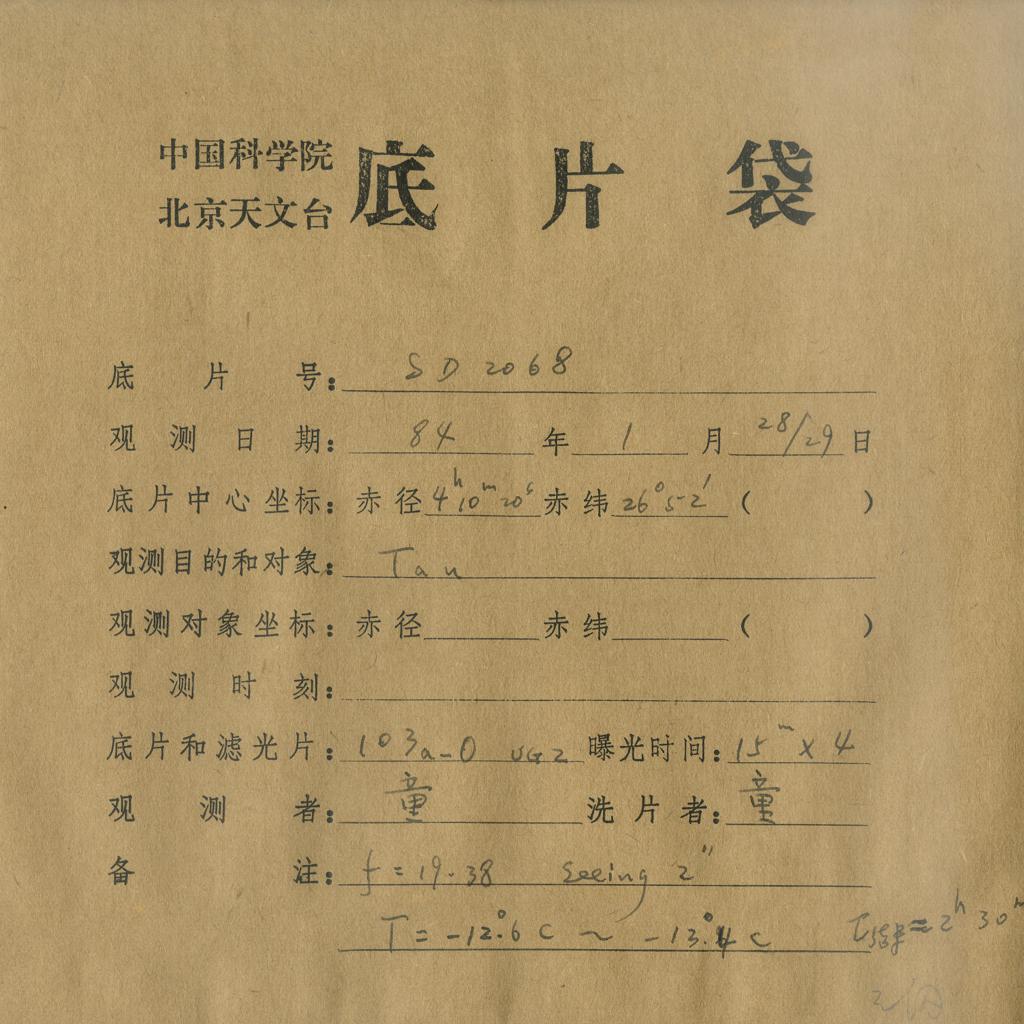 中国科学院
北京天文台 底片袋
底片号: SD 2068
观测日期: 84 年 1 月 28/29 日
底片中心坐标: 赤径 4h10m20s 赤纬 26°52′ ( )
观测目的和对象: Tau
观测对象坐标: 赤径 赤纬 ( )
观测时刻:
底片和滤光片: 103a-O UG2 曝光时间: 15m x 4
观测者: 童 洗片者: 童
备注: f = 19.38 Seeing 2″
T = -12°.6 C ~ -13°.4 C
≈ 2h 30m